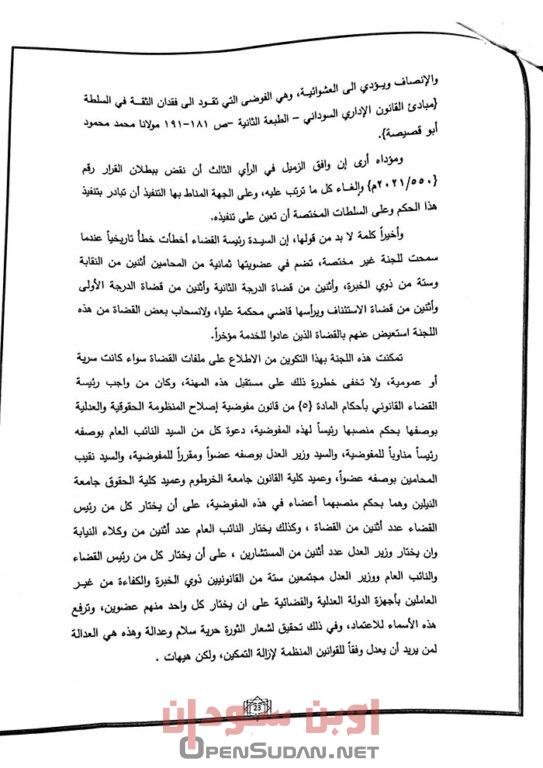 والإنصاف ويؤدي الى العشوائية، وهي الفوضى التي تقود الى فقدان الثقة في السلطة
{مبادئ القانون الإداري السوداني – الطبعة الثانية –ص ١٨١-١٩١ مولانا محمد محمود
أبو قصيصة}.
ومؤداه أرى إن وافق الزميل في الرأي الثالث أن نقض ببطلان القرار رقم
{٢٠٢١/٥٥٠م} وإلغاء كل ما ترتب عليه، وعلى الجهة المناط بها التنفيذ أن تبادر بتنفيذ
هذا الحكم وعلى السلطات المختصة أن تعين على تنفيذه.
وأخيراً كلمة لا بد من قولها، إن السيدة رئيسة القضاء أخطأت خطأ تاريخياً عندما
سمحت للجنة غير مختصة، تضم في عضويتها ثمانية من المحامين أثنين من النقابة
وستة من ذوي الخبرة، وأثنين من قضاة الدرجة الثانية وأثنين من قضاة الدرجة الأولى
وأثنين من قضاة الاستئناف ويرأسها قاضي محكمة عليا، ولانسحاب بعض القضاة من هذه
اللجنة استعيض عنهم بالقضاة الذين عادوا للخدمة مؤخراً.
تمكنت هذه اللجنة بهذا التكوين من الاطلاع على ملفات القضاة سواء كانت سرية
أو عمومية، ولا تخفى خطورة ذلك على مستقبل هذه المهنة، وكان من واجب رئيسة
القضاء القانوني بأحكام المادة {٥} من قانون مفوضية إصلاح المنظومة الحقوقية والعدلية
بوصفها بحكم منصبها رئيساً لهذه المفوضية، دعوة كل من السيد النائب العام بوصفه
رئيساً مناوباً للمفوضية، والسيد وزير العدل بوصفه عضواً ومقرراً للمفوضية، والسيد نقيب
المحامين بوصفه عضواً، وعميد كلية القانون جامعة الخرطوم وعميد كلية الحقوق جامعة
النيلين وهما بحكم منصبهما أعضاء في هذه المفوضية، على أن يختار كل من رئيس
القضاء عدد أثنين من القضاة ، وكذلك يختار النائب العام عدد أثنين من وكلاء النيابة
وان يختار وزير العدل عدد أثنين من المستشارين ، على أن يختار كل من رئيس القضاء
والنائب العام ووزير العدل مجتمعين ستة من القانونيين ذوي الخبرة والكفاءة من غير
العاملين بأجهزة الدولة العدلية والقضائية على ان يختار كل واحد منهم عضوين، وترفع
هذه الأسماء للاعتماد، وفي ذلك تحقيق لشعار الثورة حرية سلام وعدالة وهذه هي العدالة
لمن يريد أن يعدل وفقاً للقوانين المنظمة لإزالة التمكين، ولكن هيهات .
23
اوبن سودان
OPENSUDAN.NET